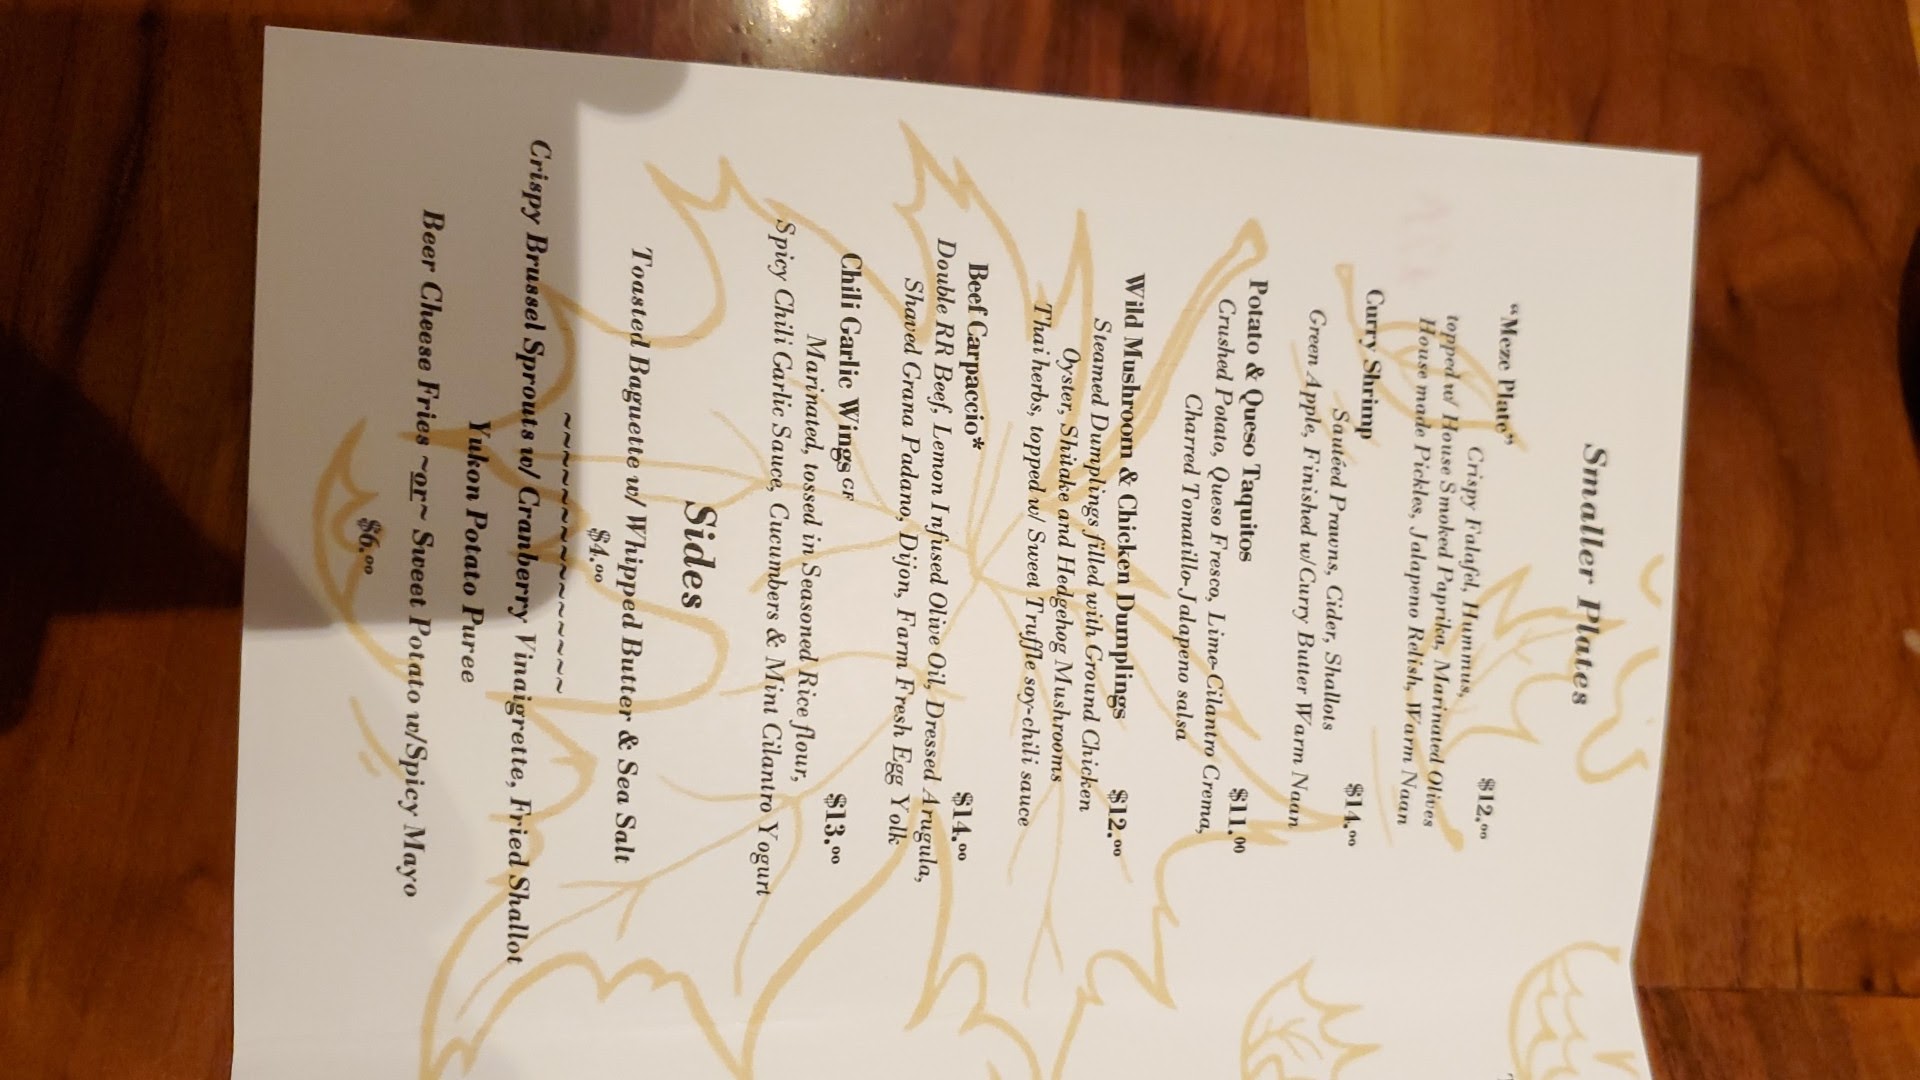 Smaller Plates
"Meze Plate" $12.00
Crispy Falafel, Hummus,
topped w/ House Smoked Paprika, Marinated Olives
House made Pickles, Jalapeno Relish, Warm Naan
Curry Shrimp $14.00
Sautéed Prawns, Cider, Shallots
Green Apple, Finished w/Curry Butter Warm Naan
Potato & Queso Taquitos $11.00
Crushed Potato, Queso Fresco, Lime-Cilantro Crema,
Charred Tomatillo-Jalapeno salsa
Wild Mushroom & Chicken Dumplings $12.00
Steamed Dumplings filled with Ground Chicken
Oyster, Shitake and Hedgehog Mushrooms
Thai herbs, topped w/ Sweet Truffle soy-chili sauce
Beef Carpaccio* $14.00
Double RR Beef, Lemon Infused Olive Oil, Dressed Arugula,
Shaved Grana Padano, Dijon, Farm Fresh Egg Yolk
Chili Garlic Wings GF $13.00
Marinated, tossed in Seasoned Rice flour,
Spicy Chili Garlic Sauce, Cucumbers & Mint Cilantro Yogurt
Sides
Toasted Baguette w/ Whipped Butter & Sea Salt
$4.00
~~~~~~~~~~~~~~~~~~
Crispy Brussel Sprouts w/ Cranberry Vinaigrette, Fried Shallot
Yukon Potato Puree
Beer Cheese Fries ~or~ Sweet Potato w/Spicy Mayo
$6.00